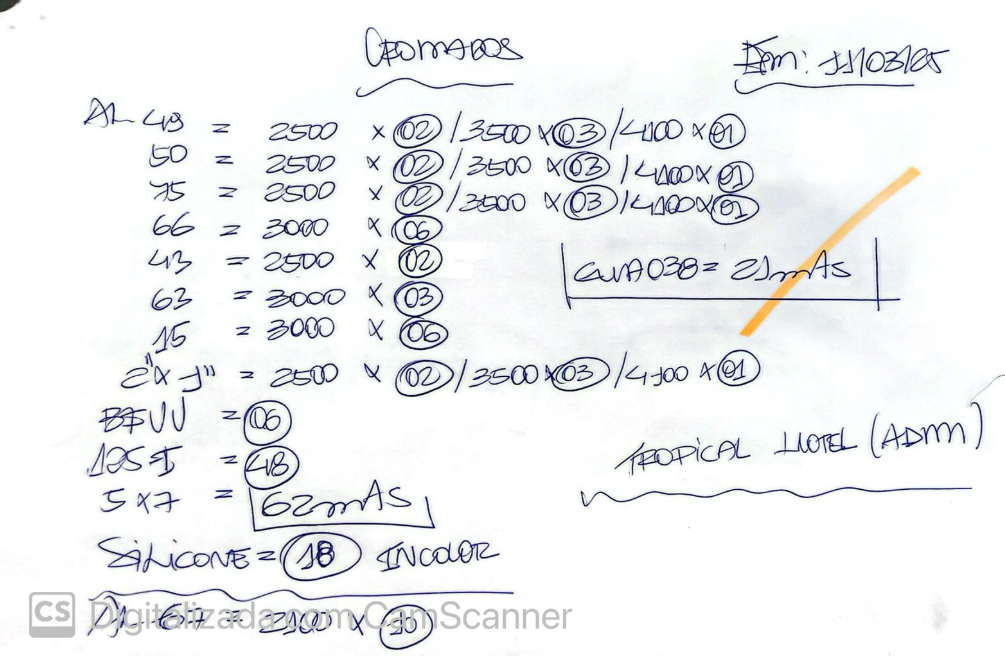 CROMADOS
Em: 11/03/25
AL 49 = 2500 x 02 / 3500 x 03 / 4100 x 01
50 = 2500 x 02 / 3500 x 03 / 4100 x 01
75 = 2500 x 02 / 3500 x 03 / 4100 x 01
66 = 3000 x 06
43 = 2500 x 02
CUA038 = 21mAs
63 = 3000 x 03
15 = 3000 x 06
2" x 1" = 2500 x 02 / 3500 x 03 / 4100 x 01
= 06
= 48
TROPICAL HOTEL (ADM)
5 x 7 = 62mAs
SiLiCONE = 18 INCOLOR
AL 67 = 2100 x 10
CS Digitalizada com CamScanner